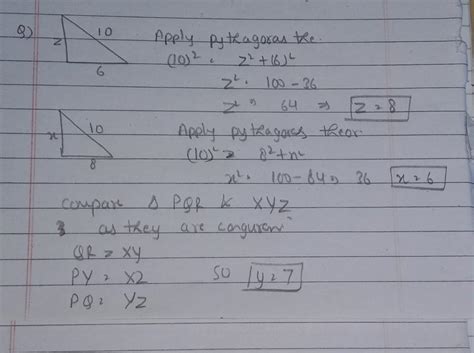 Q)
z 10 6
Apply pythagoras the.
(10)² = z² + (6)²
z² = 100 - 36
z² = 64 ⇒ z = 8
x 10 8
Apply pythagoras theor.
(10)² = 8² + x²
x² = 100 - 64 = 36 x = 6
Compare Δ PQR & XYZ
as they are congurent
QR = XY
PY = XZ so y = 7
PQ = YZ